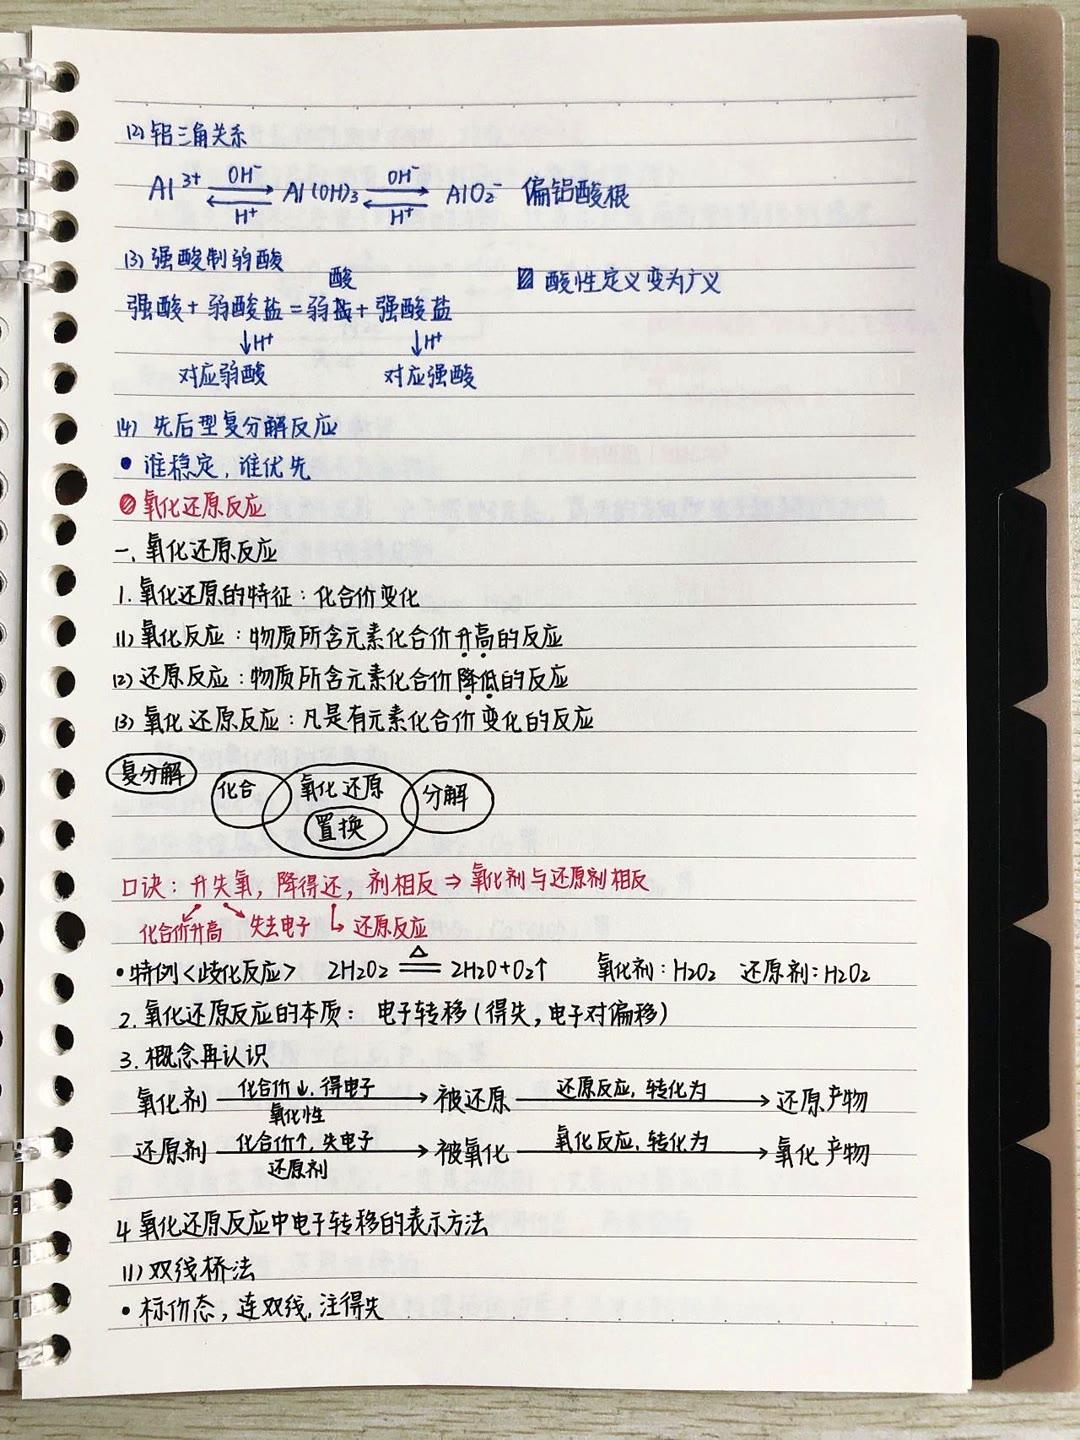 (2) 铝三角关系
Al³⁺ ⇌ Al(OH)₃ ⇌ AlO₂⁻ 偏铝酸根
OH⁻ OH⁻
H⁺ H⁺
(3) 强酸制弱酸
酸 酸性定义变为广义
强酸+弱酸盐=弱+强酸盐
↓H⁺ ↓H⁺
对应弱酸 对应强酸
(4) 先后型复分解反应
• 谁稳定,谁优先
氧化还原反应
一、氧化还原反应
1. 氧化还原的特征:化合价变化
(1) 氧化反应:物质所含元素化合价升高的反应
(2) 还原反应:物质所含元素化合价降低的反应
(3) 氧化还原反应:凡是有元素化合价变化的反应
复分解 化合 氧化还原 分解
置换
口诀:升失氧,降得还,剂相反⇒氧化剂与还原剂相反
化合价升高 失去电子 还原反应
• 特例<歧化反应> 2H₂O₂ ≜ 2H₂O+O₂↑ 氧化剂:H₂O₂ 还原剂:H₂O₂
2. 氧化还原反应的本质: 电子转移(得失,电子对偏移)
3. 概念再认识
氧化剂 化合价↓,得电子 → 被还原 还原反应,转化为 → 还原产物
氧化性
还原剂 化合价↑,失电子 → 被氧化 氧化反应,转化为 → 氧化产物
还原剂
4 氧化还原反应中电子转移的表示方法
(1) 双线桥法
• 标价态,连双线,注得失